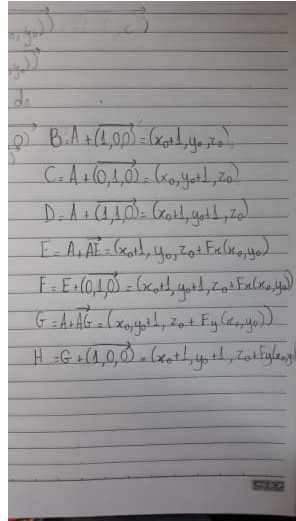 , y₀))
c)
, y₀))
do
0) B=A+(1,0,0)=(x₀+1,y₀,z₀)
C=A+(0,1,0)=(x₀,y₀+1,z₀)
D=A+(1,1,0)=(x₀+1,y₀+1,z₀)
E=A+AE=(x₀+1,y₀,z₀+Fx(x₀,y₀)
F=E+(0,1,0)=(x₀+1,y₀+1,z₀+Fx(x₀,y₀))
G=A+AG=(x₀,y₀+1,z₀+Fy(x₀,y₀))
H=G+(1,0,0)=(x₀+1,y₀+1,z₀+Fy(x₀,y₀